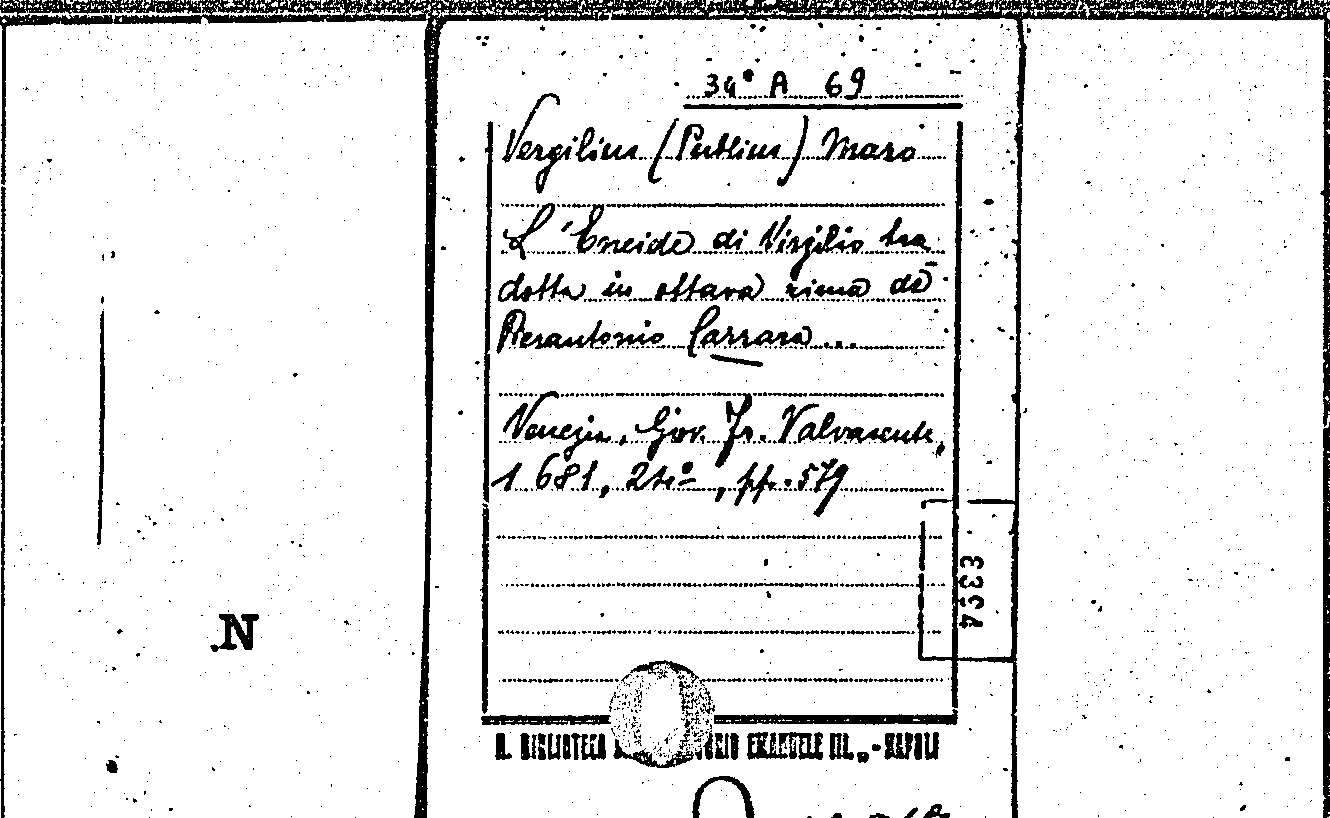 34° A 69
Vergilius (Publius) Maro
L'Eneide di Virgilio tra
dotta in ottava rima da
Pierantonio Carrara...
Venezia, Giov. Fr. Valvasente,
1681, 24°, pp. 579
3334
N
R. BIBLIOTECA EMANUELE III. „-NAPOLI